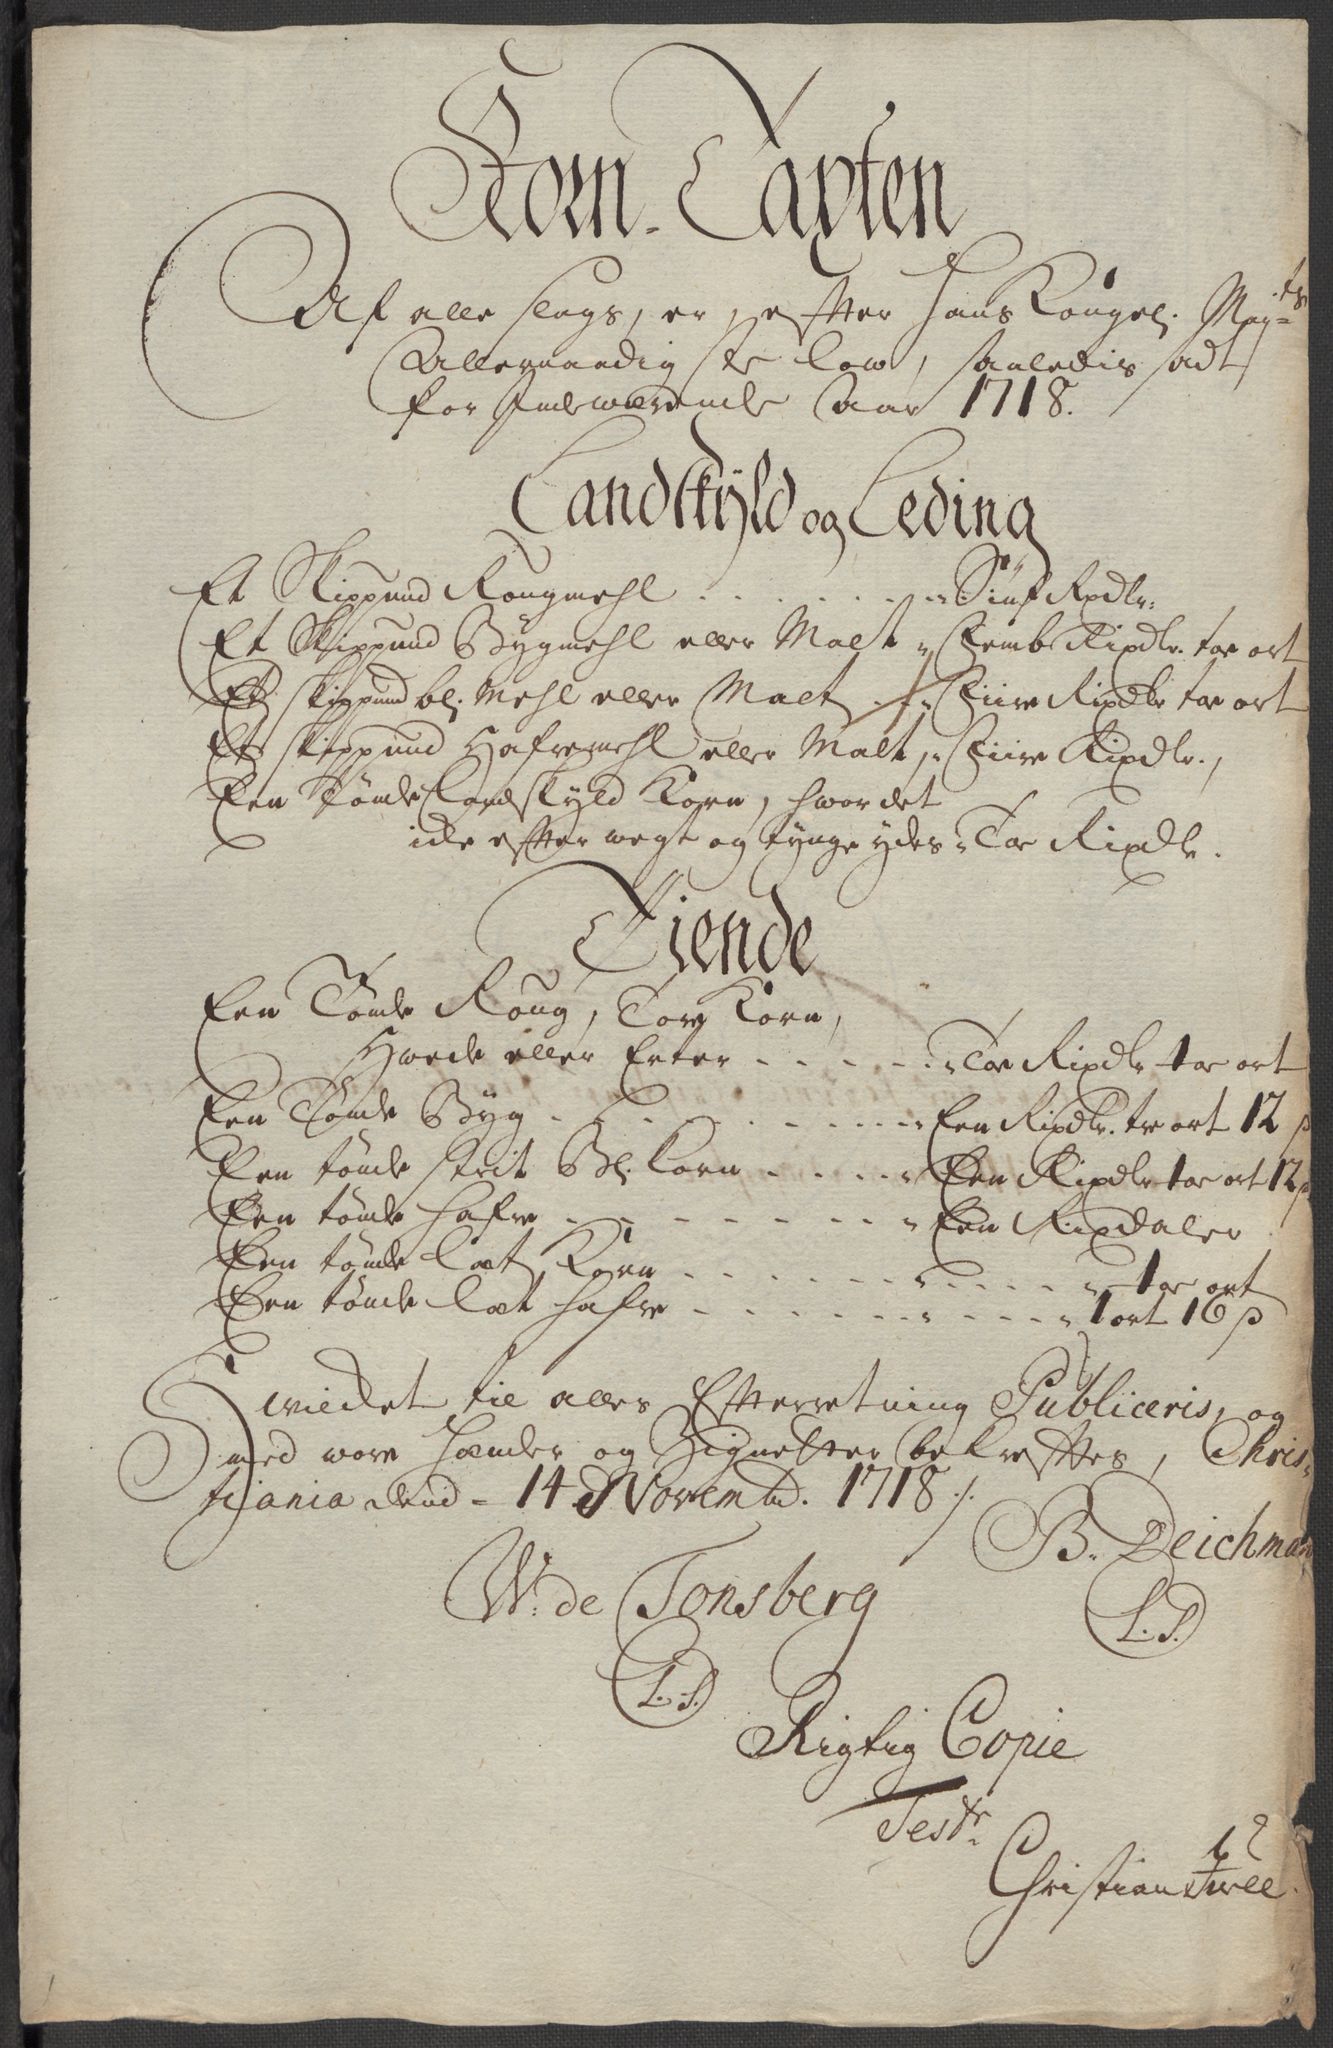 Korn-Taxten
Af alle slags, er, efter Hans Kongel: May=ts
Allernaadigste low, saaledis sadt
for Indewærende Aar 1718.
Landskÿld og Leding
Et Skippund Rougmehl . . . . . . Siuf Rixdlr:
Et Skippund Bÿgmehl eller Malt „ Femb Rixdlr. toe ort
Et skippund bl: Mehl eller Malt . „ Fiire Rixdlr toe ort
Et skippund Hafremehl eller Malt „ Fiire Rixdlr.,
Een Tønde Landskÿld Korn, hvor det
icke efter wegt og tÿnge ÿdes „ Toe Rixdlr.
Tiende
Een Tønde Roug, Tore Korn,
Hwede eller Erter - - - - „ Toe Rixdlr toe ort
Een Tønde Bÿg - - - - - - - - „ Een Rixdlr. tre ort 12 s
Een tønde strit Bl. Korn - - - - „ Een Rixdlr toe ort 12 s
Een tønde hafre - - - - - - - „ Een Rixdaler
Een tønde læt Korn - - - - - - „ - - - - „ toe ort
Een tønde læt hafre - - - - - - „ - - - „ 1 ort 16 s
Hvilcket til alles Efterretning Publiceris, og
med wore Hænder og Zignetter bekreftes, Chris-
tiania dend - 14 Novembd. 1718 ./.
B. Deichman
W: de Tonsberg
L. S.
L. S.
Rigtig Copie
Test:
Christian